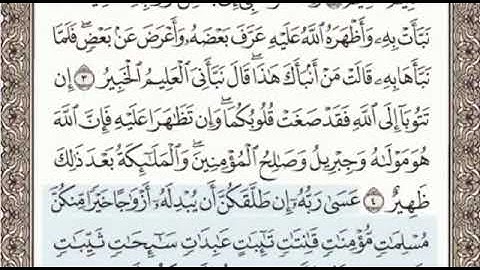 نَبَّأَتْ بِهِۦ وَأَظْهَرَهُ ٱللَّهُ عَلَيْهِ عَرَّفَ بَعْضَهُۥ وَأَعْرَضَ عَنۢ بَعْضٍۖ فَلَمَّا
نَبَّأَهَا بِهِۦ قَالَتْ مَنْ أَنۢبَأَكَ هَٰذَاۖ قَالَ نَبَّأَنِىَ ٱلْعَلِيمُ ٱلْخَبِيرُ ٣ إِن
تَتُوبَآ إِلَى ٱللَّهِ فَقَدْ صَغَتْ قُلُوبُكُمَاۖ وَإِن تَظَٰهَرَا عَلَيْهِ فَإِنَّ ٱللَّهَ
هُوَ مَوْلَىٰهُ وَجِبْرِيلُ وَصَٰلِحُ ٱلْمُؤْمِنِينَۖ وَٱلْمَلَٰٓئِكَةُ بَعْدَ ذَٰلِكَ
ظَهِيرٌ ٤ عَسَىٰ رَبُّهُۥٓ إِن طَلَّقَكُنَّ أَن يُبْدِلَهُۥٓ أَزْوَٰجًا خَيْرًا مِّنكُنَّ
مُسْلِمَٰتٍ مُّؤْمِنَٰتٍ قَٰنِتَٰتٍ تَٰٓئِبَٰتٍ عَٰبِدَٰتٍ سَٰٓئِحَٰتٍ ثَيِّبَٰتٍ